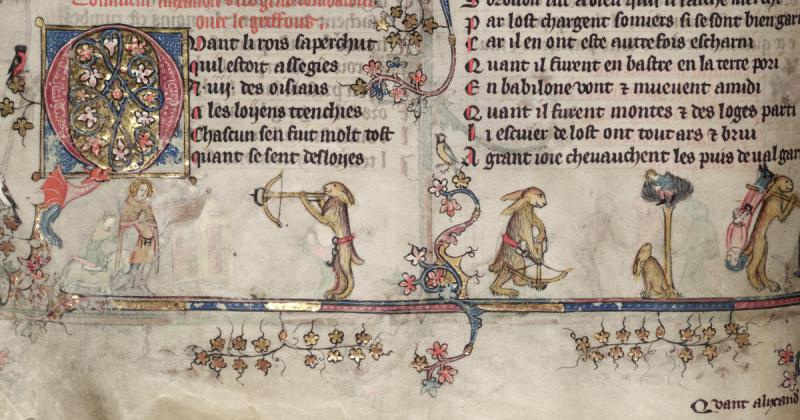 Quant li rois saperchut
quil estoit assegies
A .iiij. des oisiaus
a les loyens trenchies
Chascun sen fuit molt tost
quant se sent desloyes
Par lost chargent somiers si se sont bien garni
Car il en ont este autrefois escharni
Quant il furent en bastre en la terre pori
En babilone vont & mueuent amidi
Quant il furent montes & des loges parti
Li escuier de lost ont tout ars & brui
A grant ioie cheuauchent les puis de ual gar
Quant alixand